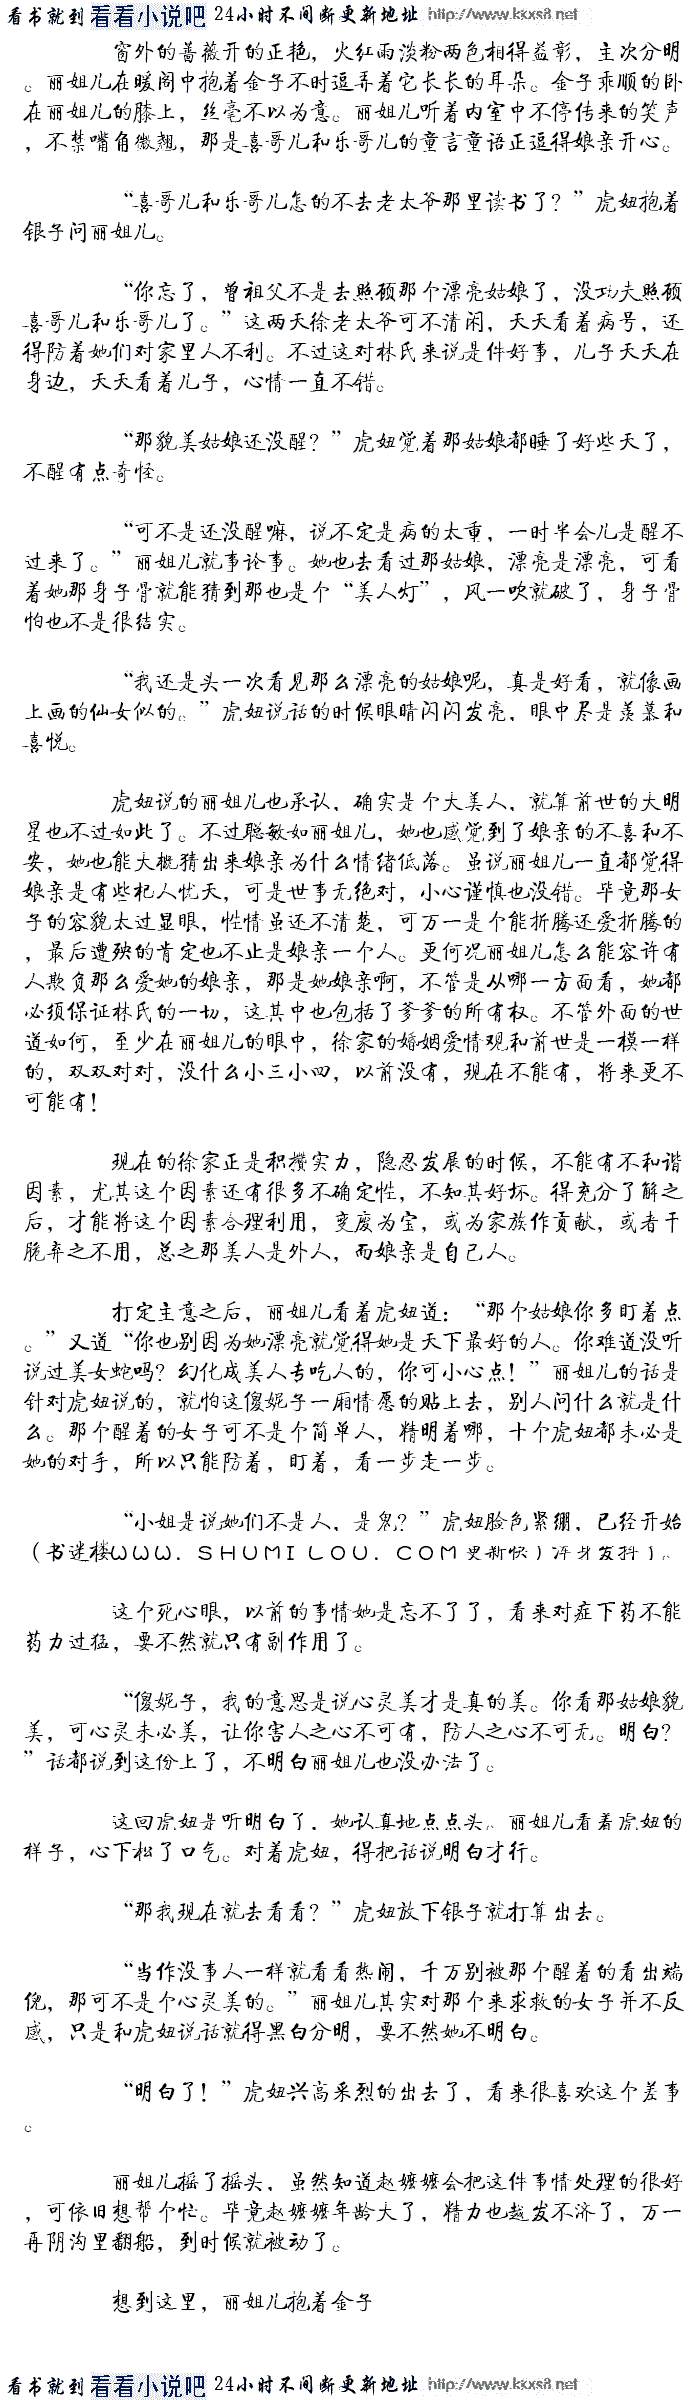 看书就到 看看小说吧 24小时不间断更新地址 http://www.kxxs8.net
窗外的蔷薇开的正艳，火红雨淡粉两色相得益彰，主次分明
。丽姐儿在暖阁中抱着金子不时逗弄着它长长的耳朵。金子乖顺的卧
在丽姐儿的膝上，丝毫不以为意。丽姐儿听着内室中不停传来的笑声
，不禁嘴角微翘，那是喜哥儿和乐哥儿的童言童语正逗得娘亲开心。
“喜哥儿和乐哥儿怎的不去老太爷那里读书了？”虎妞抱着
银子问丽姐儿。
“你忘了，曾祖父不是去照顾那个漂亮姑娘了，没功夫照顾
喜哥儿和乐哥儿了。”这两天徐老太爷可不清闲，天天看着病号，还
得防着她们对家里人不利。不过这对林氏来说是件好事，儿子天天在
身边，天天看着儿子，心情一直不错。
“那貌美姑娘还没醒？”虎妞觉着那姑娘都睡了好些天了，
不醒有点奇怪。
“可不是还没醒嘛，说不定是病的太重，一时半会儿是醒不
过来了。”丽姐儿就事论事。她也去看过那姑娘，漂亮是漂亮，可看
着她那身子骨就能猜到那也是个“美人灯”，风一吹就破了，身子骨
怕也不是很结实。
“我还是头一次看见那么漂亮的姑娘呢，真是好看，就像画
上画的仙女似的。”虎妞说话的时候眼睛闪闪发亮，眼中尽是羡慕和
喜悦。
虎妞说的丽姐儿也承认，确实是个大美人，就算前世的大明
星也不过如此了。不过聪敏如丽姐儿，她也感觉到了娘亲的不喜和不
安，她也能大概猜出来娘亲为什么情绪低落。虽说丽姐儿一直都觉得
娘亲是有些杞人忧天，可是世事无绝对，小心谨慎也没错。毕竟那女
子的容貌太过显眼，性情虽还不清楚，可万一是个能折腾还爱折腾的
，最后遭殃的肯定也不止是娘亲一个人。更何况丽姐儿怎么能容许有
人欺负那么爱她的娘亲，那是她娘亲啊，不管是从哪一方面看，她都
必须保证林氏的一切，这其中也包括了爹爹的所有权。不管外面的世
道如何，至少在丽姐儿的眼中，徐家的婚姻爱情观和前世是一模一样
的，双双对对，没什么小三小四，以前没有，现在不能有，将来更不
可能有！
现在的徐家正是积攒实力，隐忍发展的时候，不能有不和谐
因素，尤其这个因素还有很多不确定性，不知其好坏。得充分了解之
后，才能将这个因素合理利用，变废为宝，或为家族作贡献，或者干
脆弃之不用，总之那美人是外人，而娘亲是自己人。
打定主意之后，丽姐儿看着虎妞道：“那个姑娘你多盯着点
。”又道“你也别因为她漂亮就觉得她是天下最好的人。你难道没听
说过美女蛇吗？幻化成美人专吃人的，你可小心点！”丽姐儿的话是
针对虎妞说的，就怕这傻妮子一厢情愿的贴上去，别人问什么就是什
么。那个醒着的女子可不是个简单人，精明着哪，十个虎妞都未必是
她的对手，所以只能防着，盯着，看一步走一步。
“小姐是说她们不是人，是鬼？”虎妞脸色紧绷，已经开始
（书迷楼ＷＷＷ．ＳＨＵＭＩＬＯＵ．ＣＯＭ更新快）浑身发抖）。
这个死心眼，以前的事情她是忘不了了，看来对症下药不能
药力过猛，要不然就只有副作用了。
“傻妮子，我的意思是说心灵美才是真的美。你看那姑娘貌
美，可心灵未必美，让你害人之心不可有，防人之心不可无。明白？
”话都说到这份上了，不明白丽姐儿也没办法了。
这回虎妞是听明白了，她认真地点点头。丽姐儿看着虎妞的
样子，心下松了口气。对着虎妞，得把话说明白才行。
“那我现在就去看看？”虎妞放下银子就打算出去。
“当作没事人一样就看看热闹，千万别被那个醒着的看出端
倪，那可不是个心灵美的。”丽姐儿其实对那个来求救的女子并不反
感，只是和虎妞说话就得黑白分明，要不然她不明白。
“明白了！”虎妞兴高采烈的出去了，看来很喜欢这个差事
。
丽姐儿摇了摇头，虽然知道赵嬷嬷会把这件事情处理的很好
，可依旧想帮个忙。毕竟赵嬷嬷年龄大了，精力也越发不济了，万一
再阴沟里翻船，到时候就被动了。
想到这里，丽姐儿抱着金子
看书就到 看看小说吧 24小时不间断更新地址 http://www.kxxs8.net